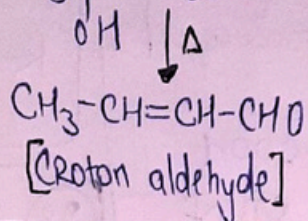 OH Δ
CH₃-CH=CH-CHO
[Croton aldehyde]